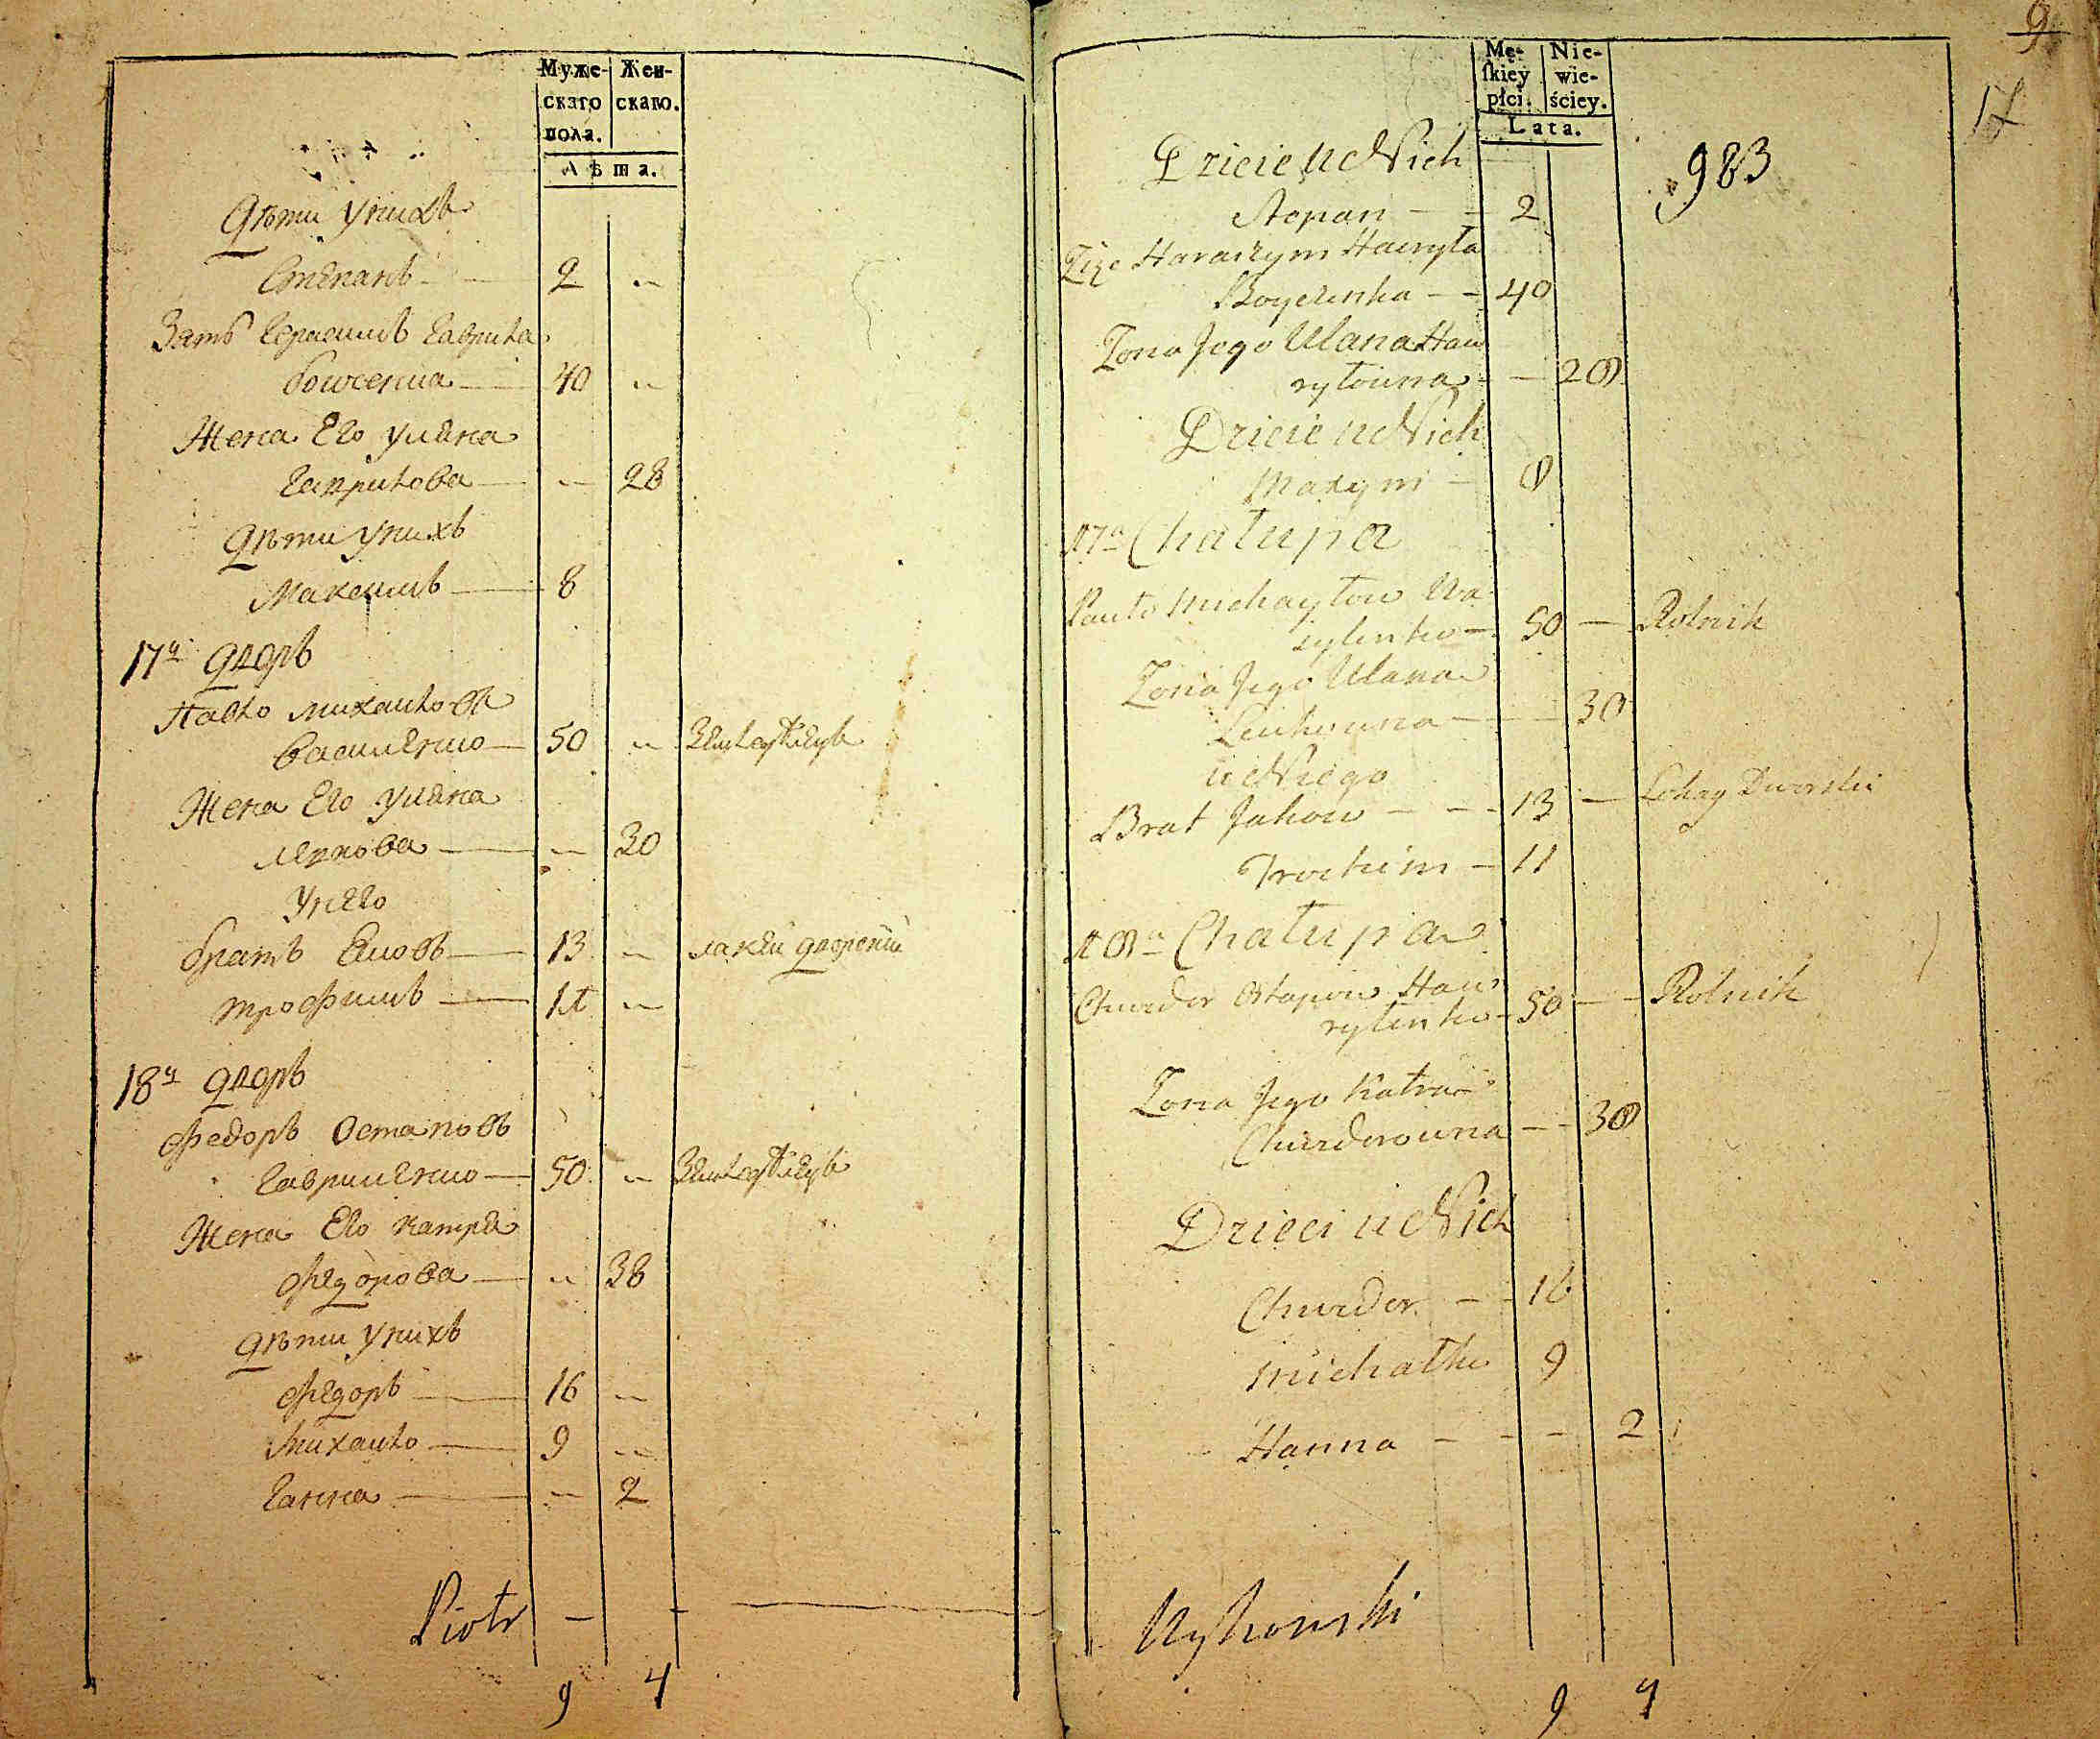 Муже-
скаго
пола.
Жен-
скаго.
Лѣта.
Дѣти у нихъ
Степанъ — 2 „
Зять Герасимъ Гаврила
40 „
Жена Его Уляна
Гаврилова — „ 28
Дѣти у нихъ
Максимъ — 8
17й дворъ
Павло Михайловъ
Василенко — 50 „
Жена Его Уляна
— „ 30
У него
братъ Яковъ — 13 „ лакей дворский
трофимъ — 11 „
18й дворъ
Федоръ Остаповъ
Гавриленко — 50 „
Жена Его Катря
Федорова — „ 38
Дѣти у нихъ
Федоръ — 16 „
Михайло — 9 „
Ганна — „ 2
Piotr —
9 4
Mę-
ſkiey
płci.
Nie-
wie-
ściey.
Lata.
9
17
983
Dziecie u Nich
Stepan — 2
Zięc Haraszym Hawryła
40
Zona Jego Ulana Haw
ryłowna — 28
Dziecie u Nich
Maxym — 8
17a Chałupa
Pawło Michayłow Wa
sylenko — 50 — Rolnik
Zona Jego Ulana
— 30
u Niego
Brat Jakow — 13 — Lokay Dworski
Trochim — 11
18a Chałupa
Chwedor Ostapow Haw
rylenko — 50 — Rolnik
Zona Jego Katra
Chwedorowna — 38
Dzieci u Nich
Chwedor — 16
Michałko 9
Hanna — 2
9 4